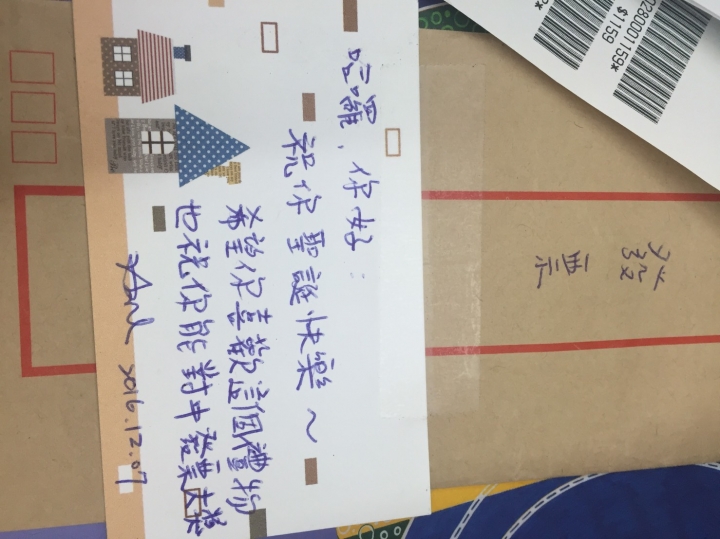 哈囉，你好：
祝你聖誕快樂～
希望你喜歡這個禮物
也祝你能對中發票大獎
2016.12.07
發票
0280001159*
$1159